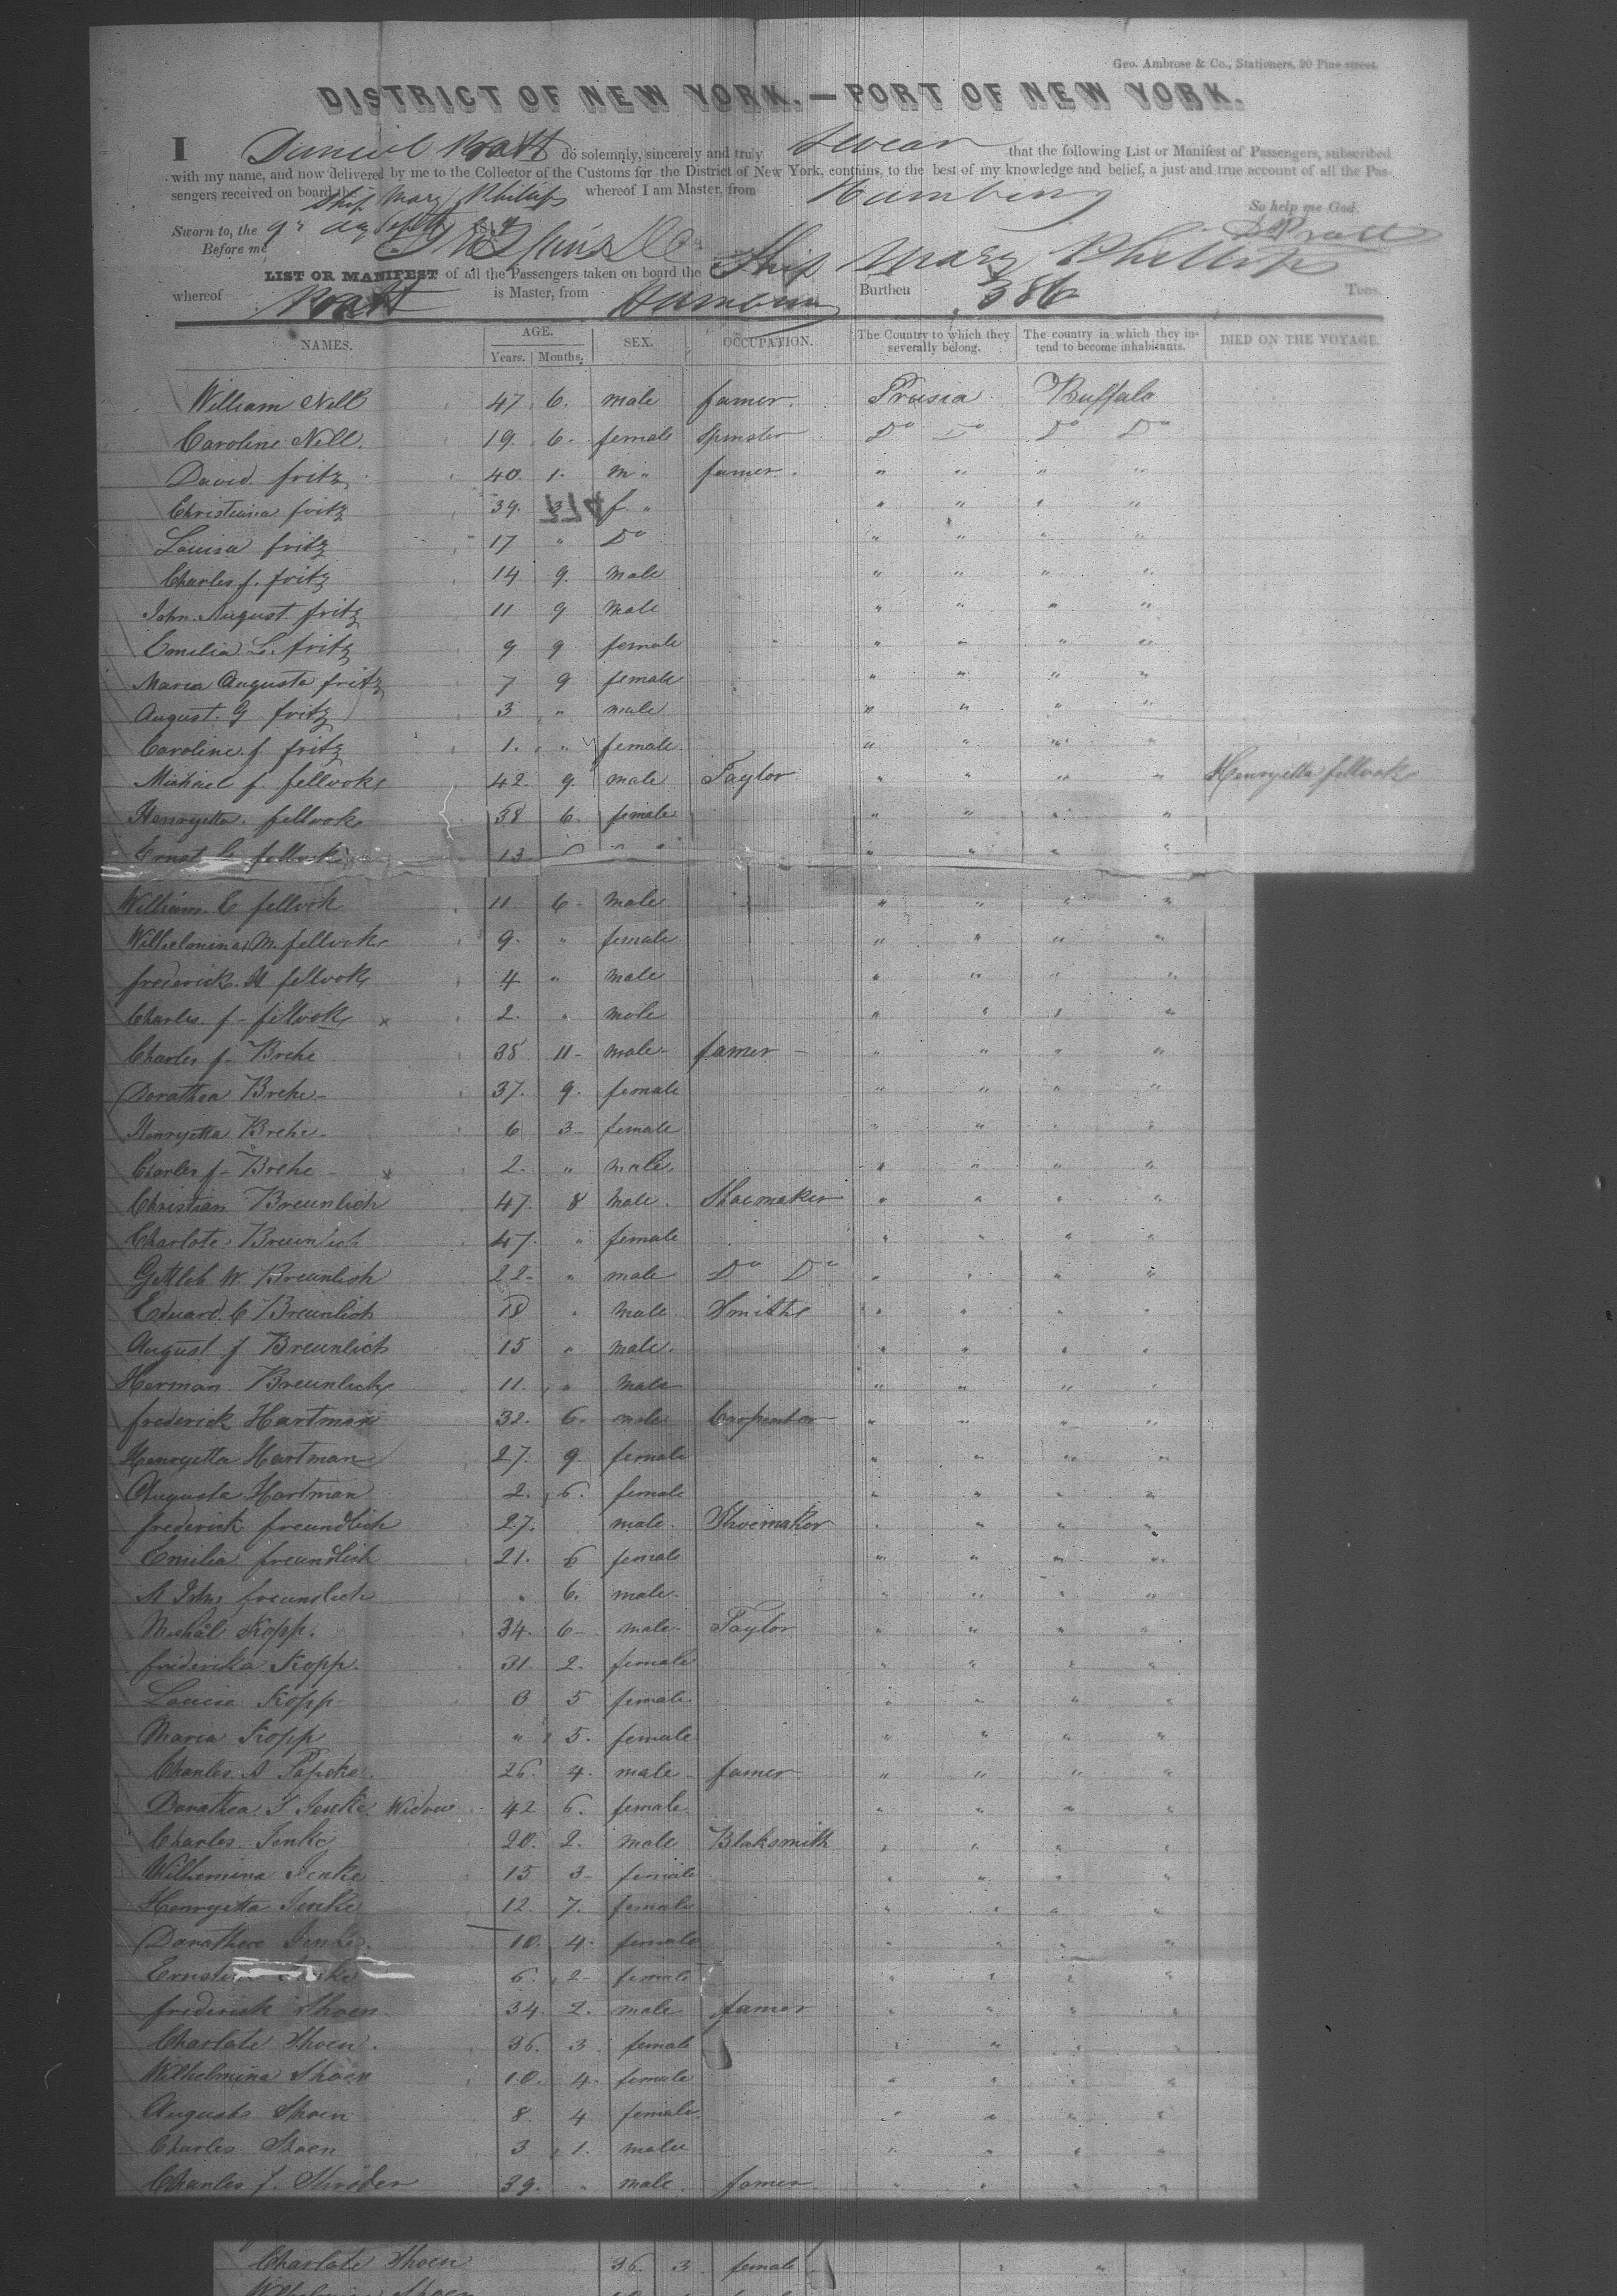 Geo. Ambrose & Co., Stationers, 20 Pine street.
DISTRICT OF NEW YORK.—PORT OF NEW YORK.
I Daniel Pratt do solemnly, sincerely and truly swear that the following List or Manifest of Passengers, subscribed
with my name, and now delivered by me to the Collector of the Customs for the District of New York, contains, to the best of my knowledge and belief, a just and true account of all the Pas-
sengers received on board the Ship Mary Philips whereof I am Master, from Hamburg
So help me God.
Sworn to, the 9
Before me D Pratt
LIST OR MANIFEST of all the Passengers taken on board the Ship Mary Phellips
whereof Pratt is Master, from Hamburg Burthen 386 Tons.
NAMES. AGE. Years. Months. SEX. OCCUPATION. The Country to which they severally belong. The country in which they intend to become inhabitants. DIED ON THE VOYAGE.
William Nell 47 6. male famer. Prusia Buffalo
Caroline Nell. 19. 6- female Spinster Do Do Do Do
David fritz 40. 1. m " famer. " " " "
Christiana fritz 39. f. " " " " "
Louisa fritz 17 " Do " " " "
Charles f. fritz 14 9. male " " " "
John August fritz 11 9 male " " " "
Emilia L. fritz 9 9 female " " " "
Maria Augusta fritz 7 9 female " " " "
August. G fritz 3 " male " " " "
Caroline f. fritz 1. " female. " " " "
Michael f. fellvoks 42. 9. male Taylor " " " " Henryetta fellvok
Henryetta. fellvok 38 6. female " " " "
Ernst C fellvok 13 " " " "
William. C fellvok 11 6- male " " " "
Wilhelmina M. fellvok 9. " female " " " "
frederick. H fellvok 4 " male " " " "
Charles. f- fellvok x 2. " male " " " "
Charles f- Brehe 38 11- male- famer - " " " "
Dorathea Brehe- 37. 9. female " " " "
Henryetta Brehe- 6 3- female " " " "
Charles f- Brehe - x 2. " male. " " " "
Christian Breunlich 47. 8 male. Shoemaker " " " "
Charlote Breunlich 47. " female " " " "
Gottlieb W. Breunlich 22- " male Do Do " " " "
Eduard. C Breunlich 18 " male Smith " " " "
August f Breunlich 15 " male. " " " "
Herman Breunlich 11. " male " " " "
frederick Hartman 32. 6. male Carpenter " " " "
Henryetta Hartman 27. 9. female " " " "
Augusta Hartman 2. 6. female " " " "
frederick freundlich 27. male. Shoemaker " " " "
Emilia freundlich 21. 6 female " " " "
A John freundlich " 6. male. " " " "
Michäl Kopp. 34. 6- male- Taylor " " " "
friderika Kopp. 31. 2. female " " " "
Kopp 5 female " " " "
Maria Kopp " 5. female " " " "
Charles. A Papeke. 26. 4. male famer " " " "
Dorathea. Jenke Widow 42 6. female " " " "
Charles. Jenke 20. 2. male Blaksmith " " " "
Wilhemina Jenke 15 3- female " " " "
Henryetta Jenke 12. 7. female " " " "
Dorathea Jenke. 10. 4. female " " " "
Jenke 6. 2- female " " " "
frederick Shoen 34. 2. male famer " " " "
Charlate Shoen. 36. 3 female " " " "
Wilhelmina Shoen 10. 4- female " " " "
Auguste Shoen 8. 4 female. " " " "
Charles Shoen 3 1. male " " " "
Charles f. Shröder 39. " male. famer. " " " "
Charlate Shoen 36. 3 female " "
Wilhelmina Shoen